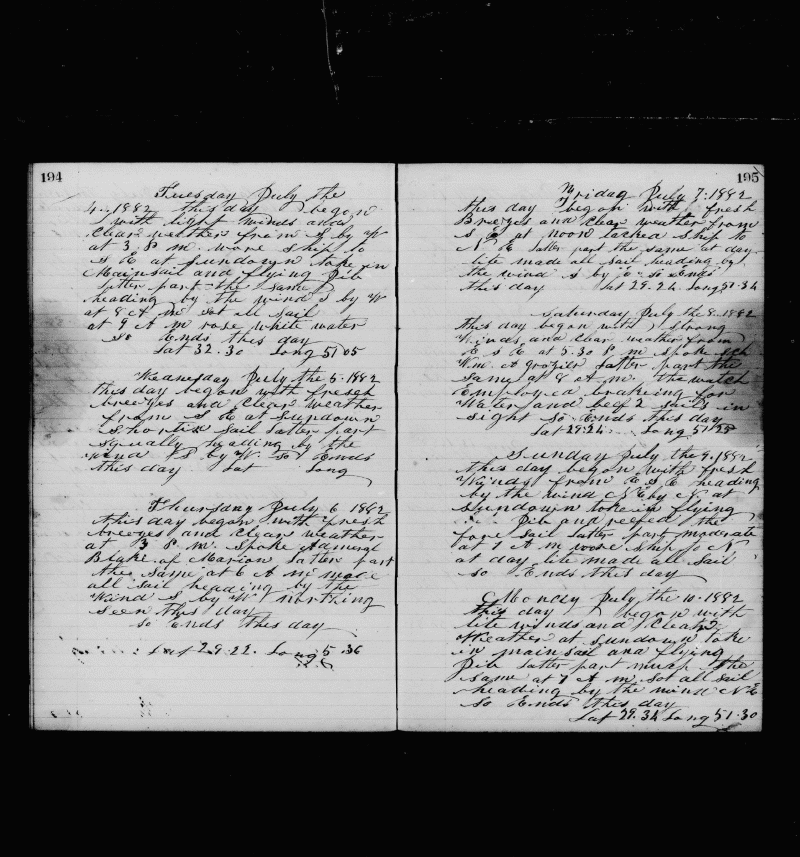 194
Tuesday July the
4. 1882 this day begon
with light winds and
clear weather from S by W
at 3 P M. wore ship to
S E at sundown take in
Mainsail and flying Jib
latter part the same
heading by the wind S by W
at 8 A M sot all sail
at 9 A M rose white water
So Ends this day
Lat 32.30 Long 51 05
Wednesday July the 5. 1882
this day begon with fresh
breezes and Clear Weather
from S E at Sundown
Shorten Sail latter part
squally heading by the
wind by W. So Ends
this day Lat Long
Thursday July 6 1882
this day began with fresh
breezes and Clear weather
at 3 P. M. Spoke Admiral
Blake of Marion latter part
the same at 6 A M made
all sail heading by the
Wind S by W northing
seen this day
So Ends this day
Lat 29.22. Long 5 .36
195
Friday July 7. 1882
this day begon with fresh
Breezes and Clear weather from
S E at noon tacked ship to
N E latter part the same at day
lite made all sail heading by
the wind S by E So Ends
this day Lat 29.24 Long 51.34
Saturday July the 8. 1882
this day begon with strong
Winds and clear weather from
E S E at 5.30 P M spoke sch
Wm. A Grozier latter part the
same at 8 A M. the watch
Employed braking for
Water and beef 2 sails in
sight So Ends this day
Lat 29.24. Long 51 25
Sunday July the 9. 1882
this day began with fresh
Winds from E S E heading
by the wind N E by N at
Sundown take in flying
Jib and reefed the
fore sail latter part moderate
at 7 A M wore ship to N
at day lite made all sail
So Ends this day
Monday July the 10. 1882
this day begon with
lite winds and Clear
Weather at sundown take
in mainsail and flying
Jib latter part much the
same at 7 A M. sot all sail
heading by the wind N E
So Ends this day
Lat 29.34 Long 51.30